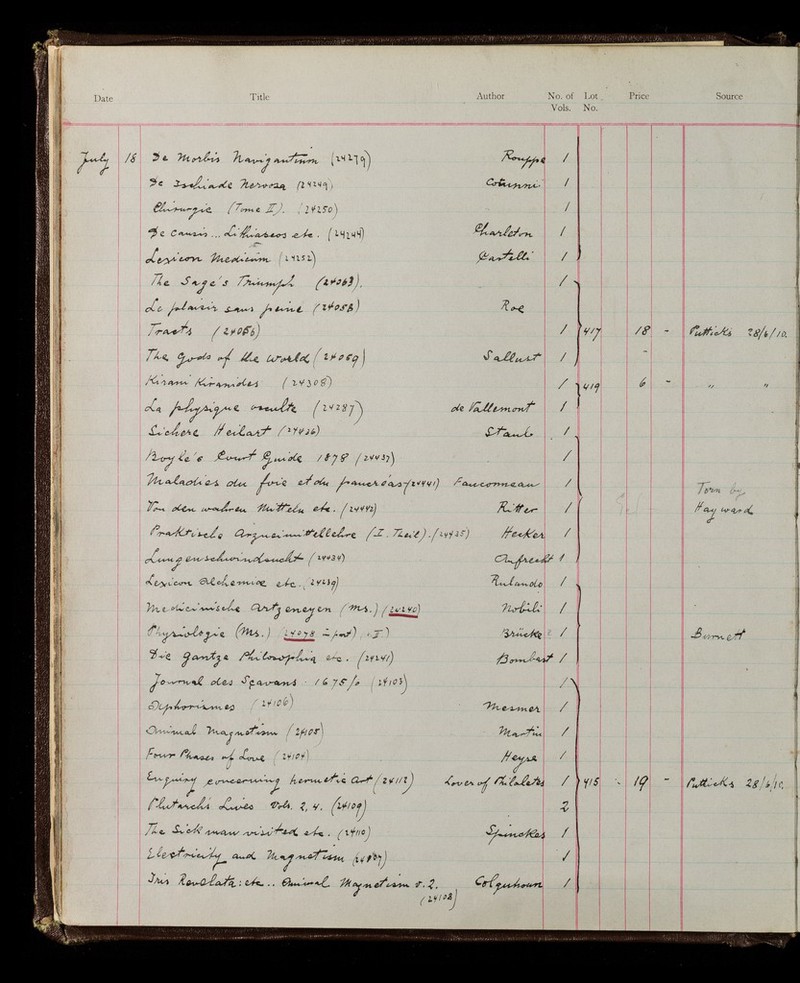 Date Title Author No. of Vols. Lot No. Price Source
July 18 De Morbis Navigantium (24279) Rouppe 1
De Ischiade Nervosa (24249) Cotunni 1
Chirurgie (Tome II). (24250) 1
De causis ... Lithiaseos etc. (24244) Charleton 1
Lexicon Medicum (24252) Castelli 1
The Sage's Triumph (24063). 1
Le plaisir sans peine (24058) Roe
Tracts (24056) 1 417 18 - Putticks 28/6/10.
The Gods of the World (24069) Sallust 1 -
Kirani Kiranides (24308) 1 419 6 - " "
La physique occulte (24287) de Vallemont 1
Sichere Heilart (24436) Staub 1
Boyle's Court Guide 1878 (24437) 1
Maladies du foie et du pancréas (24441) Fauconneau 1
Von den wahren Mitteln etc. (24442) Ritter 1 Torn by Hayward
Praktische Arzneimittellehre (I. Theil). (24435) Hecker 1
Lungenschwindsucht (24434) Aufrecht 1
Lexicon Alchemiæ etc. (24239) Rulando 1
Medicinische Artzeneyen (Ms.) (24240) Nobili 1
Physiologie (Ms.) (24078 in part) (I) Brücke 1 Burnett
Die Gantze Philosophia etc. (24241) Bombast 1
Journal des Sçavans 1675/6 (24103) 1
Aphorismes (24106) Mesmer 1
Animal Magnetism (24105) Martin 1
Four Phases of Love (24104) Heyse 1
Enquiry concerning hermetic art (24112) Lover of Philaletes 1 415 - 19 - Putticks 28/6/10.
Plutarchs Lives Vols. 2, 4. (24109) 2
The Sick man visited etc. (24110) Spinckes 1
Electricity and Magnetism (24107) 1
Isis Revelata: etc.. Animal Magnetism v. 2. (24108) Colquhoun 1